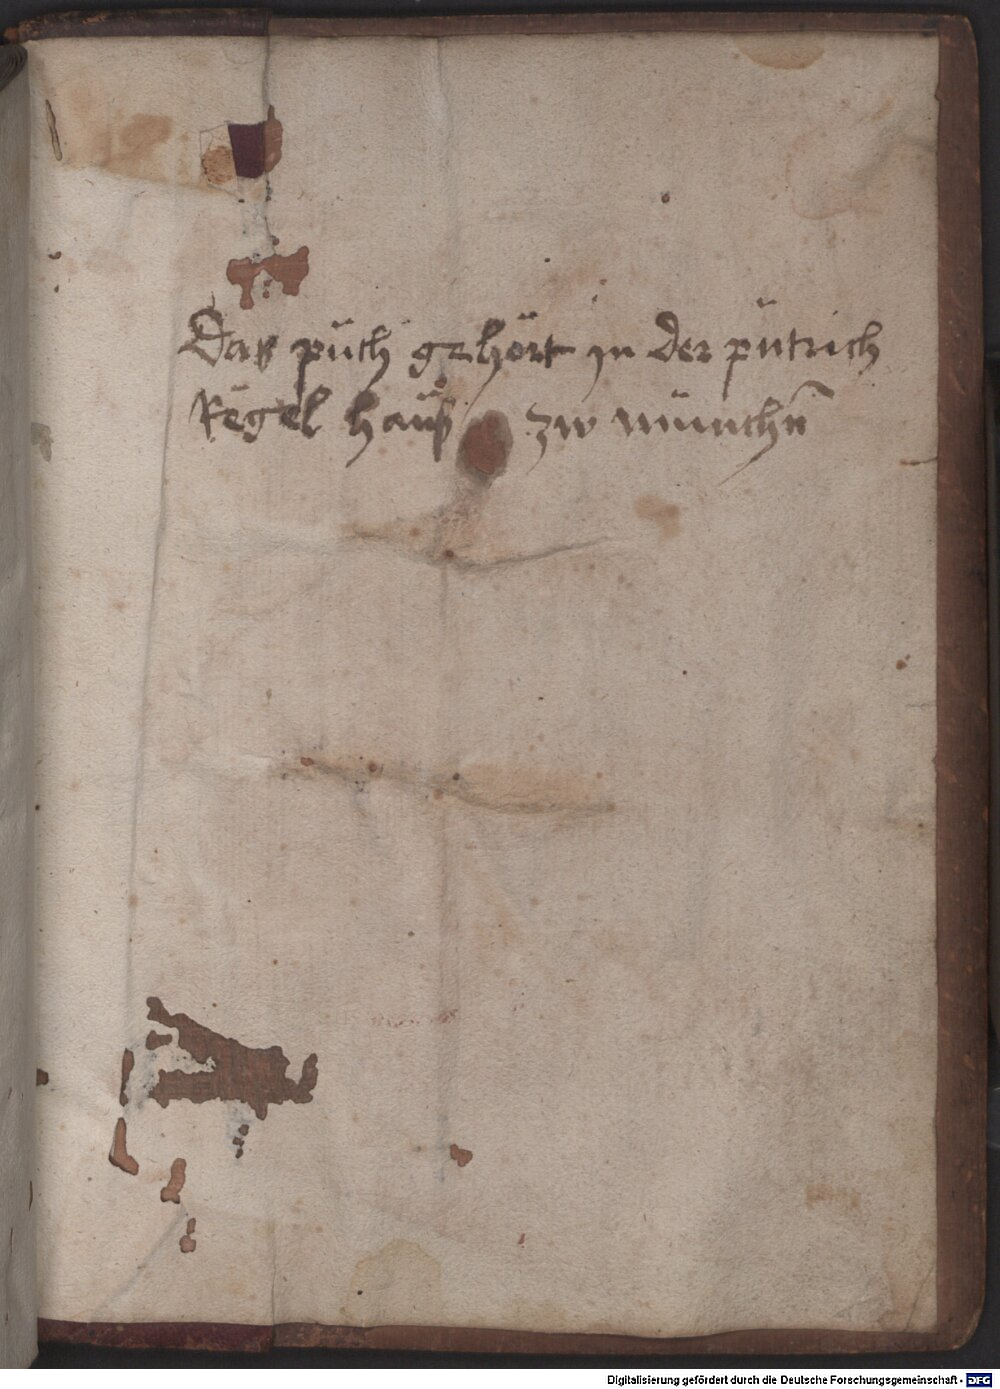 Das püch gehört in der pütrich
Regel hauß zw münchn̄
Digitalisierung gefördert durch die Deutsche Forschungsgemeinschaft - DFG